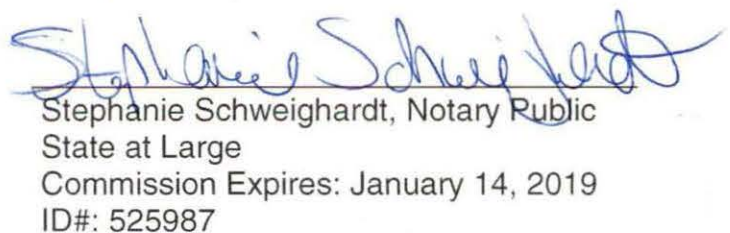 Stephanie Schweighardt
Stephanie Schweighardt, Notary Public
State at Large
Commission Expires: January 14, 2019
ID#: 525987